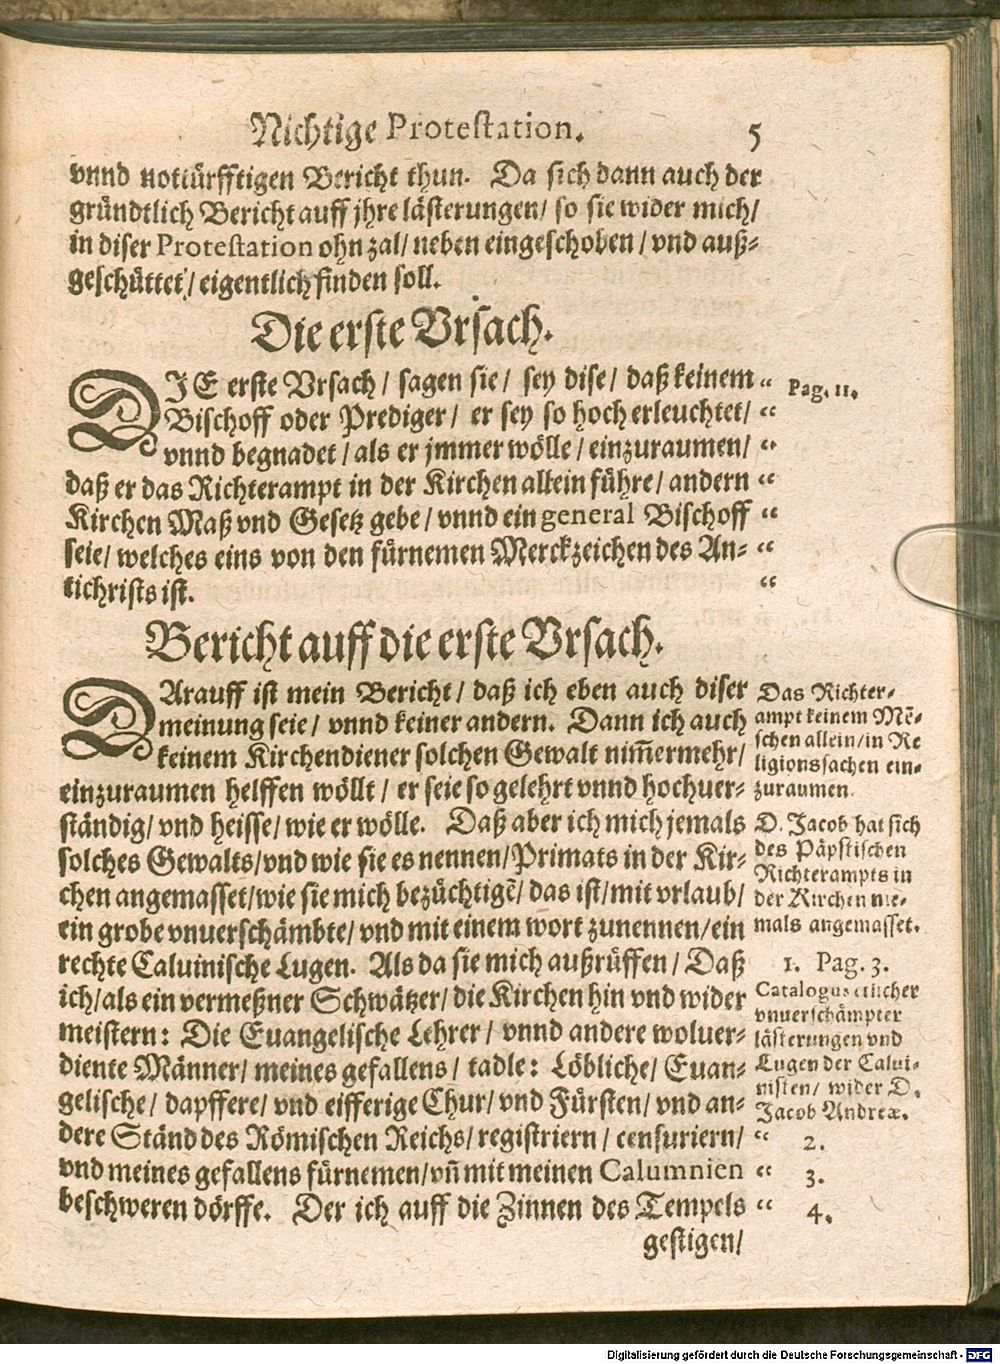 Nichtige Protestation. 5
vnnd nottürfftigen Bericht thun. Da sich dann auch der
gründtlich Bericht auff jhre lästerungen/ so sie wider mich/
in diser Protestation ohn zal/ neben eingeschoben/ vnd auß-
geschüttet/ eigentlich finden soll.
Die erste Vrsach.
DIE erste Vrsach/ sagen sie/ sey dise/ daß keinem “ Pag. 11.
Bischoff oder Prediger/ er sey so hoch erleuchtet/ “
vnnd begnadet/ als er jmmer wölle/ einzuraumen/ “
daß er das Richterampt in der Kirchen allein führe/ andern “
Kirchen Maß vnd Gesetz gebe/ vnnd ein general Bischoff “
seie/ welches eins von den fürnemen Merckzeichen des An- “
tichrists ist. “
Bericht auff die erste Vrsach.
DArauff ist mein Bericht/ daß ich eben auch diser
meinung seie/ vnnd keiner andern. Dann ich auch
keinem Kirchendiener solchen Gewalt nim̃ermehr/
einzuraumen helffen wöllt/ er seie so gelehrt vnnd hochuer-
ständig/ vnd heisse/ wie er wölle. Daß aber ich mich jemals
solches Gewalts/ vnd wie sie es nennen/ Primats in der Kir-
chen angemasset/ wie sie mich bezüchtigẽ/ das ist/ mit vrlaub/
ein grobe vnuerschämbte/ vnd mit einem wort zunennen/ ein
rechte Caluinische Lugen. Als da sie mich außrüffen/ Daß
ich/ als ein vermeßner Schwätzer/ die Kirchen hin vnd wider
meistern: Die Euangelische Lehrer/ vnnd andere woluer-
diente Männer/ meines gefallens/ tadle: Löbliche/ Euan-
gelische/ dapffere/ vnd eifferige Chur/ vnd Fürsten/ vnd an-
dere Ständ des Römischen Reichs/ registriern/ censuriern/ “
vnd meines gefallens fürnemen/ vñ mit meinen Calumnien “
beschweren dörffe. Der ich auff die Zinnen des Tempels “
gestigen/
Das Richter-
ampt keinem Mẽ-
schen allein/ in Re
ligionssachen ein-
zuraumen.
D. Jacob hat sich
des Päpstischen
Richterampts in
der Kirchen nie-
mals angemasset.
1. Pag. 3.
Catalogus etlicher
vnuerschämpter
lästerungen vnd
Lugen der Calui-
nisten/ wider D.
Jacob Andreæ.
2.
3.
4.
Digitalisierung gefördert durch die Deutsche Forschungsgemeinschaft - DFG